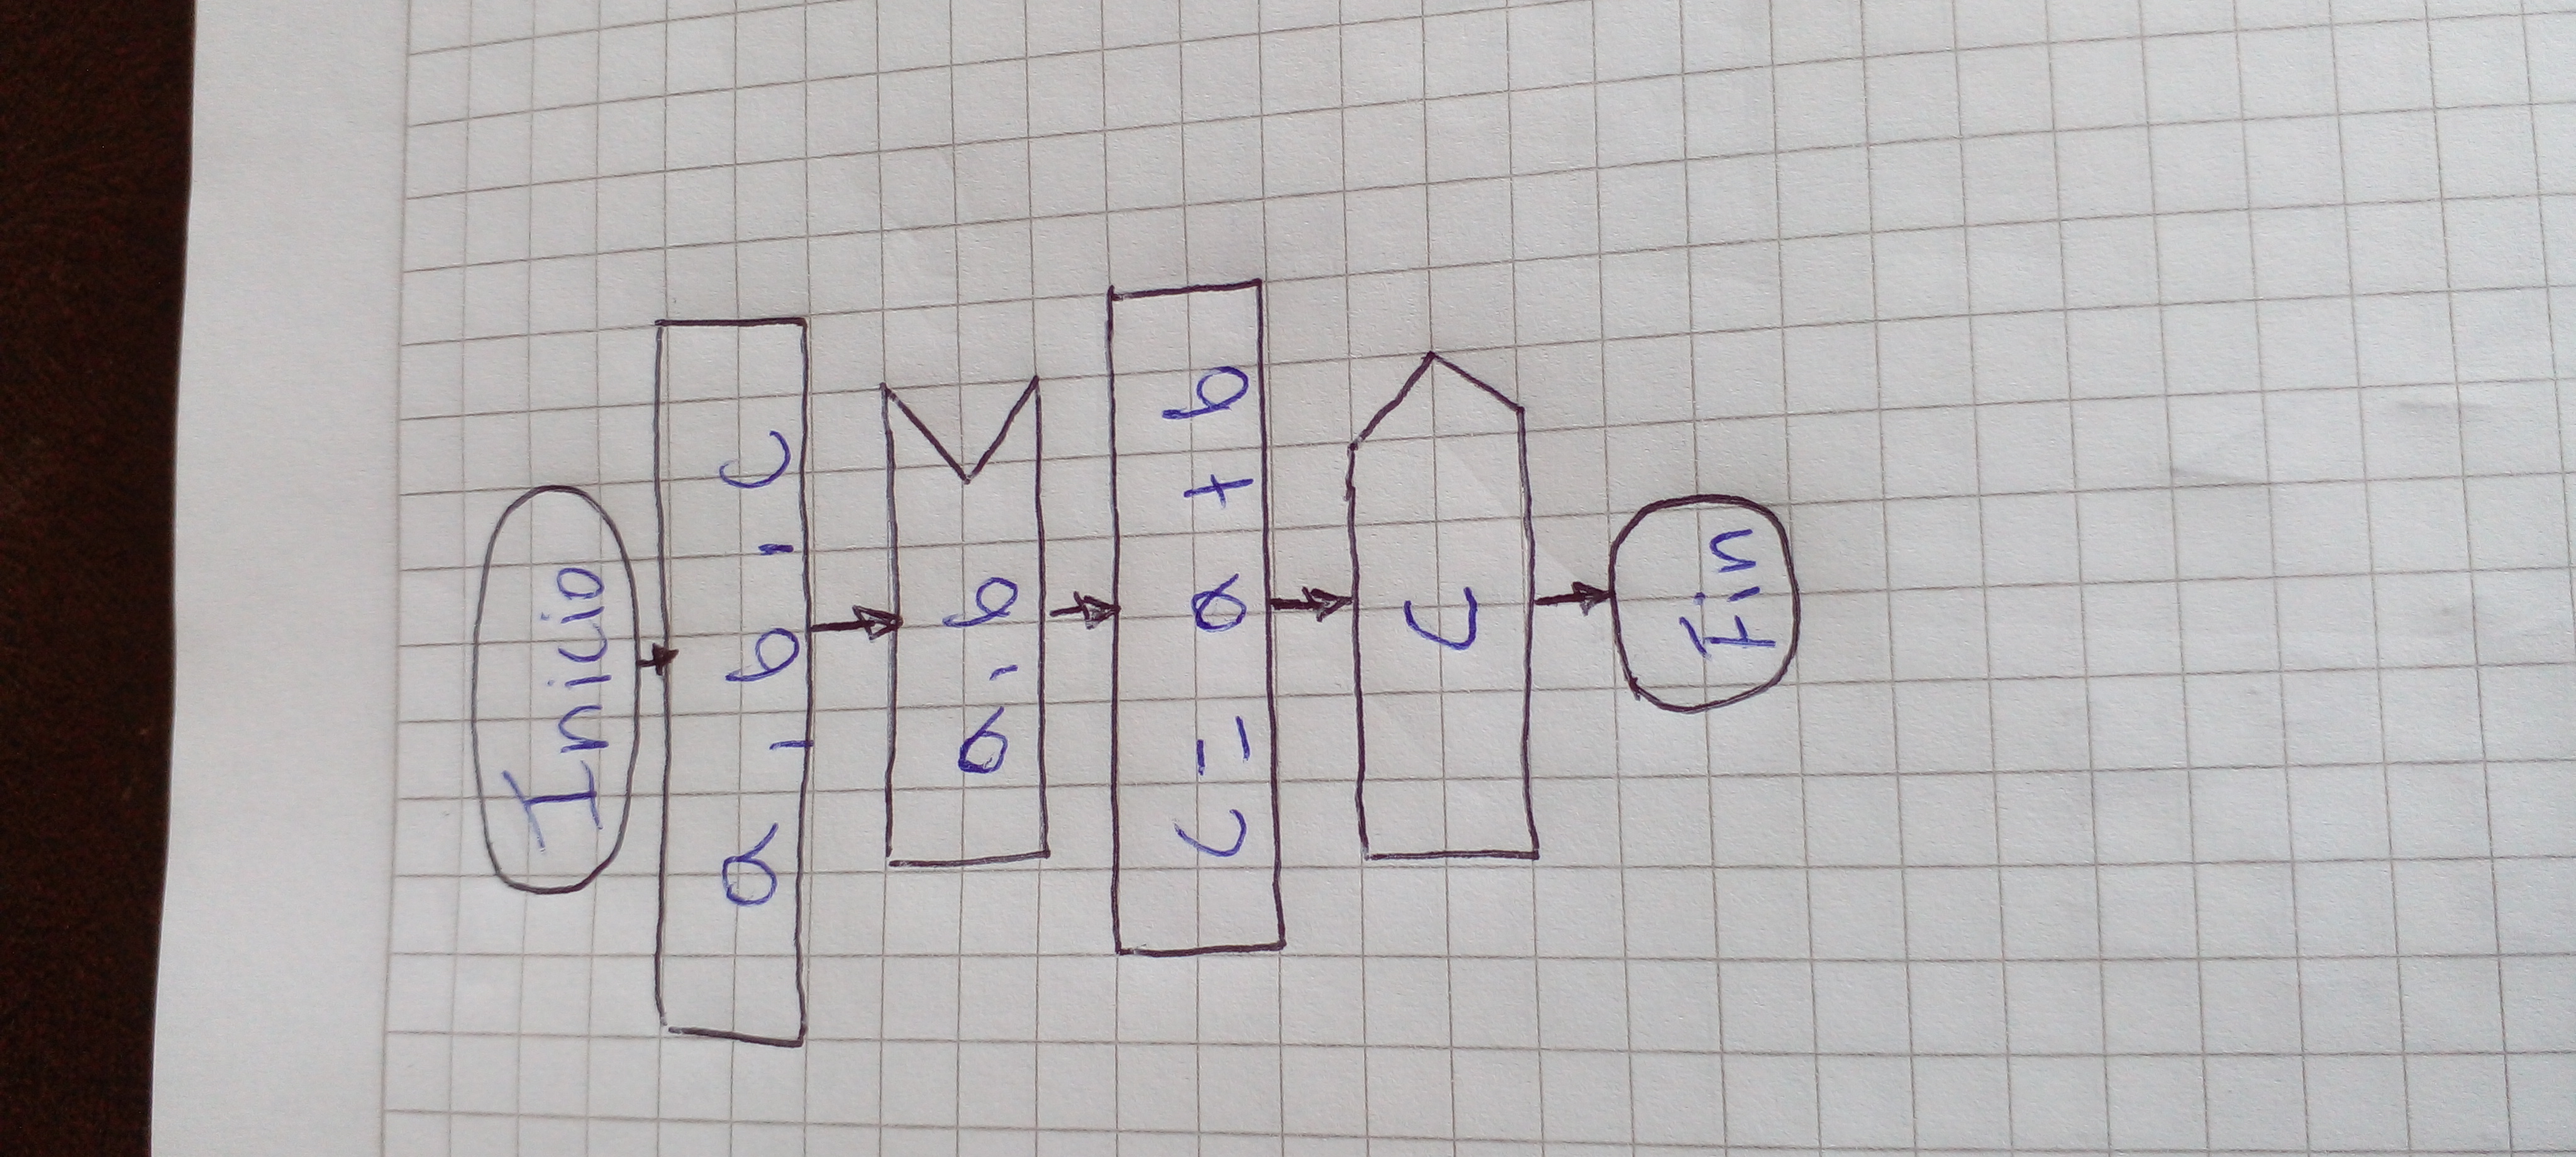 Inicio
a , b , c
a, b
c = a + b
C
Fin